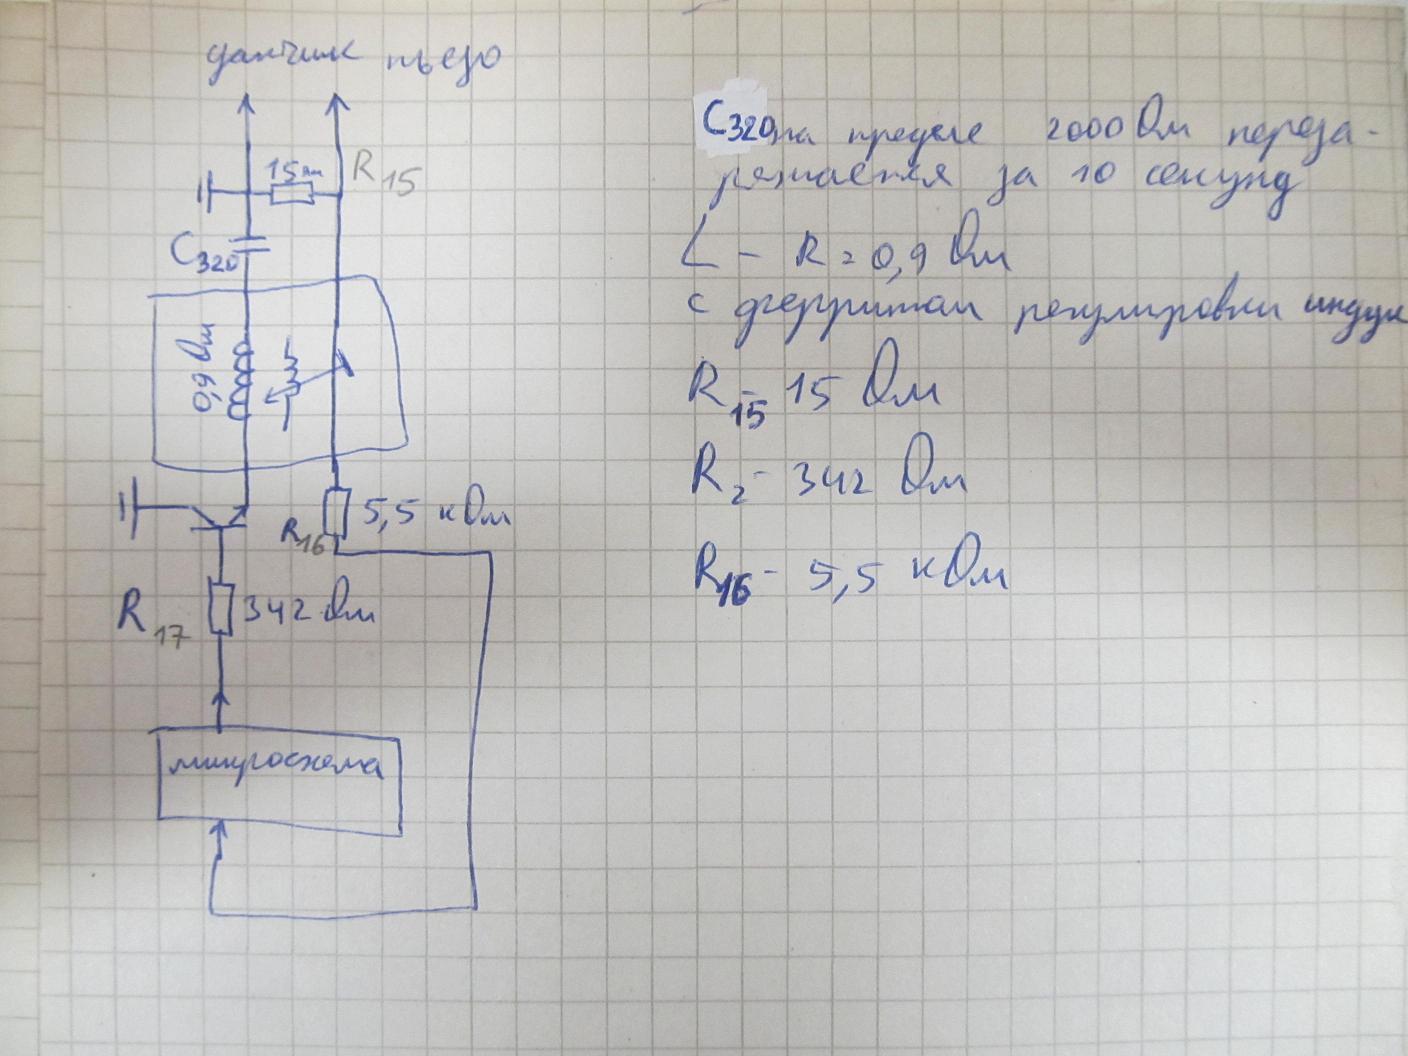 датчик пьезо
15 Ом
R15
C320
0,9 Ом
5,5 кОм
R16
R17
342 Ом
микросхема
C320 на пределе 2000 Ом переза-
ряжается за 10 секунд
L - R = 0,9 Ом
с ферритом регулировки индук
R15 - 15 Ом
R2 - 342 Ом
R16 - 5,5 кОм